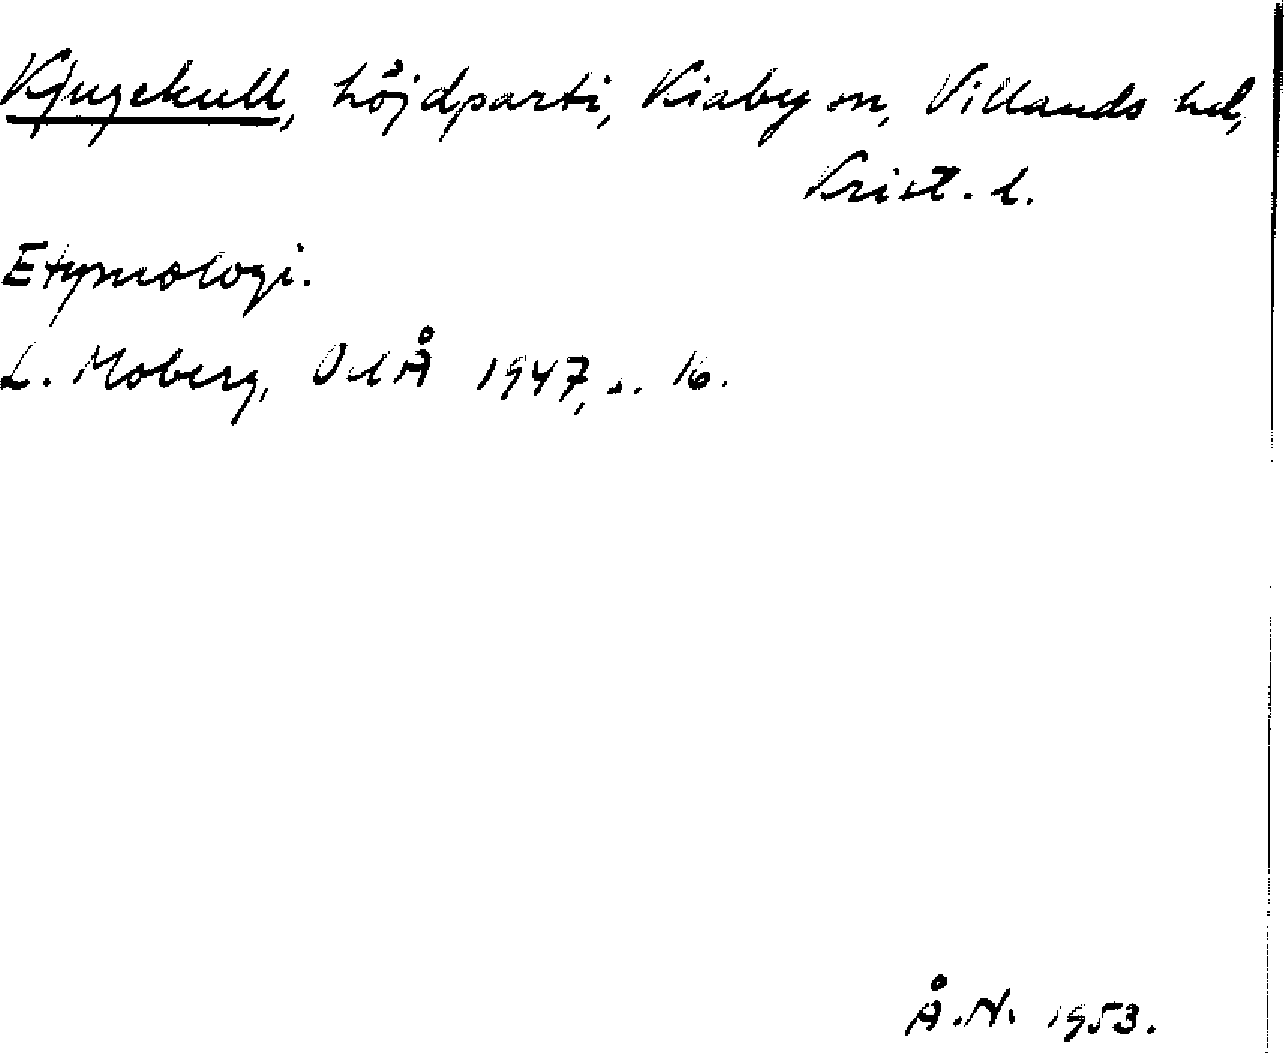 Kjugekull, höjdparti, Kiaby sn, Villands hd,
Krist. l.
Etymologi.
L. Moberg, OUÅ 1947, s. 16.
Å.N. 1953.